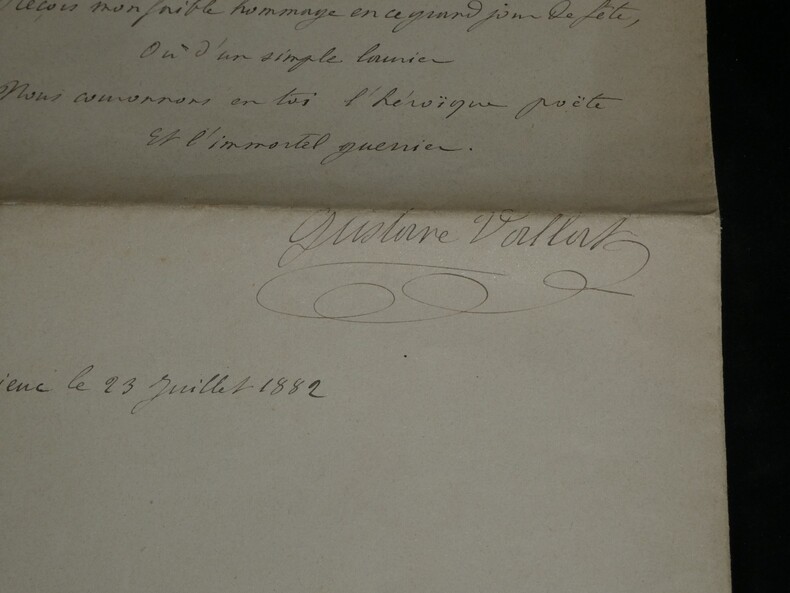 Reçois mon faible hommage en ce grand jour de fête,
Où d'un simple laurier
Nous couronnons en toi l'héroïque poëte
Et l'immortel guerrier.
Gustave Vallat
le 23 Juillet 1882